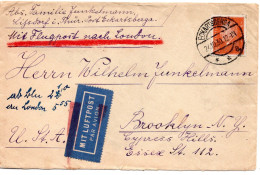 Abs. Familie Junkelmann,
Mit Flugpost nach London.
Herrn Wilhelm Junkelmann
ab Bln
an London
MIT LUFTPOST
PAR AVION
Brooklyn - N. Y.
Cypress Hills.
U. S. A.
Essex St. 112.